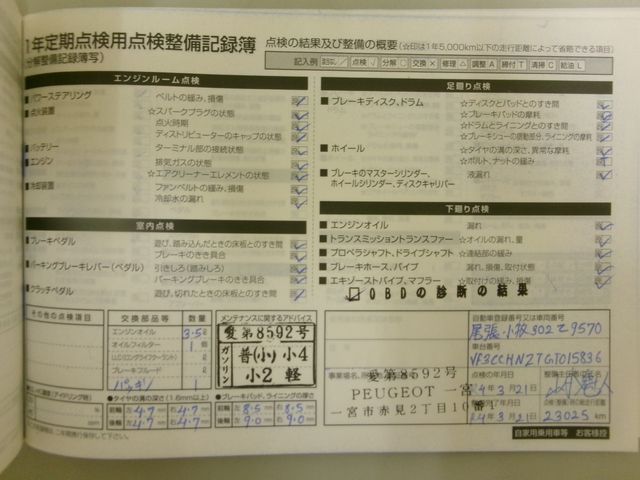 1年定期点検用点検整備記録簿 点検の結果及び整備の概要(☆印は1年5,000km以下の走行距離によって省略できる項目)
(分解整備記録簿写)
記入例 点検 ✓ 分解 ○ 交換 × 修理 △ 調整 A 締付 T 清掃 C 給油 L
エンジンルーム点検
■パワーステアリング ベルトの緩み、損傷
■点火装置 ☆スパークプラグの状態
点火時期
ディストリビューターのキャップの状態
■バッテリー ターミナル部の接続状態
■エンジン 排気ガスの状態
☆エアクリーナーエレメントの状態
■冷却装置 ファンベルトの緩み、損傷
冷却水の漏れ
室内点検
■ブレーキペダル 遊び、踏み込んだときの床板とのすき間
ブレーキのきき具合
■パーキングブレーキレバー(ペダル) 引きしろ(踏みしろ)
パーキングブレーキのきき具合
■クラッチペダル 遊び、切れたときの床板とのすき間
足廻り点検
■ブレーキディスク、ドラム ☆ディスクとパッドとのすき間
☆ブレーキパッドの摩耗
☆ドラムとライニングとのすき間
☆ブレーキシューの摺動部分、ライニングの摩耗
■ホイール ☆タイヤの溝の深さ、異常な摩耗
☆ボルト、ナットの緩み
■ブレーキのマスターシリンダー、 液漏れ
ホイールシリンダー、ディスクキャリパー
下廻り点検
■エンジンオイル 漏れ
■トランスミッション トランスファー ☆オイルの漏れ、量
■プロペラシャフト、ドライブシャフト ☆連結部の緩み
■ブレーキホース、パイプ 漏れ、損傷、取付状態
■エキゾーストパイプ、マフラー ☆取付けの緩み、損傷
OBDの診断の結果
その他の点検項目 交換部品等 数量
エンジンオイル 3.5ℓ
オイルフィルター 1個
LLC(ロングライフクーラント) ℓ
ブレーキフルード ℓ
パッキン 1
メンテナンスに関するアドバイス
愛第8592号
ガソリン
普(小)小4
小2 軽
●タイヤの溝の深さ(1.6mm以上)
前輪 左 4.7 mm 右 4.7 mm
後輪 左 4.7 mm 右 4.7 mm
●ブレーキパッド、ライニングの厚さ
前輪 左 8.5 mm 右 8.5 mm
後輪 左 9.0 mm 右 9.0 mm
愛第8592号
PEUGEOT 一宮
一宮市赤見2丁目10番1
自動車登録番号又は車両番号
尾張小牧302て9570
車台番号
VF3CCHNZTGT015836
点検の年月日
24年3月21日
24年3月21日
23025 km
自家用乗用車等 お客様控